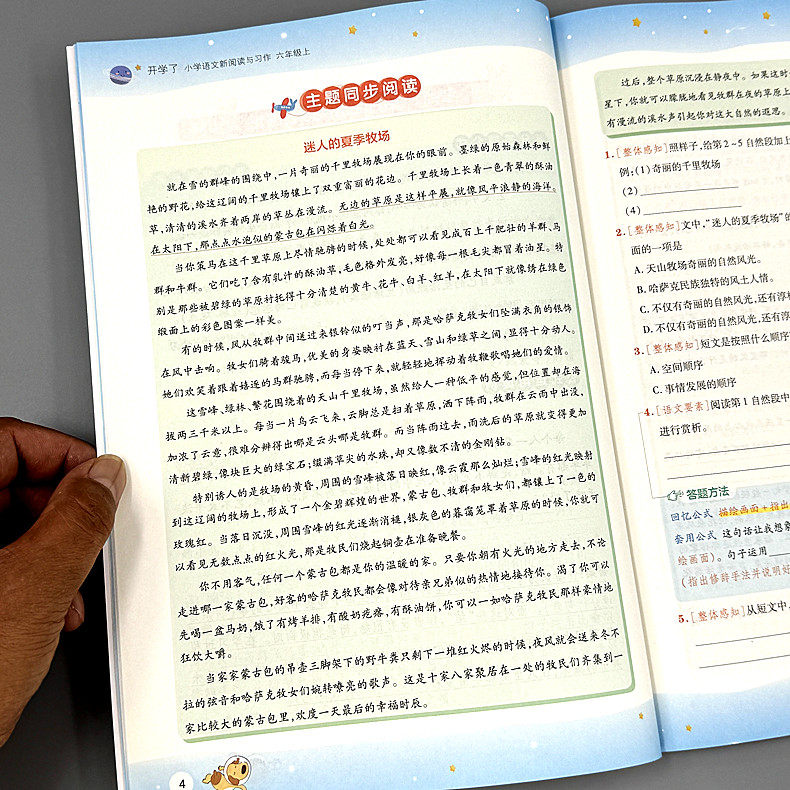 开学了 小学语文新阅读与习作 六年级上
主题同步阅读
迷人的夏季牧场
就在雪的群峰的围绕中,一片奇丽的千里牧场展现在你的眼前。墨绿的原始森林和鲜
艳的野花,给这辽阔的千里牧场镶上了双重富丽的花边。千里牧场上长着一色青翠的酥油
草,清清的溪水齐着两岸的草丛在漫流。无边的草原是这样平展,就像风平浪静的海洋。
在太阳下,那点点水泡似的蒙古包在闪烁着白光。
当你策马在这千里草原上尽情驰骋的时候,处处都可以看见成百上千肥壮的羊群、马
群和牛群。它们吃了含有乳汁的酥油草,毛色格外发亮,好像每一根毛尖都冒着油星。特
别是那些被碧绿的草原衬托得十分清楚的黄牛、花牛、白羊、红羊,在太阳下就像绣在绿色
缎面上的彩色图案一样美。
有的时候,风从牧群中间送过来银铃似的叮当声,那是哈萨克牧女们坠满衣角的银饰
在风中击响。牧女们骑着骏马,优美的身姿映衬在蓝天、雪山和绿草之间,显得十分动人。
她们欢笑着跟着嬉逐的马群驰骋,而每当停下来,就轻轻地挥动着牧鞭歌唱她们的爱情。
这雪峰、绿林、繁花围绕着的天山千里牧场,虽然给人一种低平的感觉,但位置却在海
拔两三千米以上。每当一片乌云飞来,云脚总是扫着草原,洒下阵雨,牧群在云雨中出没,
加浓了云意,很难分辨得出哪是云头哪是牧群。而当阵雨过去,雨洗后的草原就变得更加
清新碧绿,像块巨大的绿宝石;缀满草尖的水珠,却又像数不清的金刚钻。
特别诱人的是牧场的黄昏,周围的雪峰被落日映红,像云霞那么灿烂;雪峰的红光映射
到这辽阔的牧场上,形成了一个金碧辉煌的世界,蒙古包、牧群和牧女们,都镶上了一色的
玫瑰红。当落日沉没,周围雪峰的红光逐渐消褪,银灰色的暮霭笼罩着草原的时候,你就可
以看见无数点点的红火光,那是牧民们烧起铜壶在准备晚餐。
你不用客气,任何一个蒙古包都是你的温暖的家。只要你朝有火光的地方走去,不论
走进哪一家蒙古包,好客的哈萨克牧民都会像对待亲兄弟似的热情地接待你。渴了你可以
先喝一盆马奶,饿了有烤羊排,有酸奶疙瘩,有酥油饼,你可以一如哈萨克牧民那样豪情地
狂饮大嚼。
当家家蒙古包的吊壶三脚架下的野牛粪只剩下一堆红火烬的时候,夜风就会送来冬不
拉的弦音和哈萨克牧女们婉转嘹亮的歌声。这是十家八家聚居在一处的牧民们齐集到一
家比较大的蒙古包里,欢度一天最后的幸福时辰。
4
过后,整个草原沉浸在静夜中。如果这时
星下,你就可以朦胧地看见牧群在夜的草原上
有漫流的溪水声引起你对这大自然的遐思。
1.[整体感知]照样子,给第2~5自然段加上
例:(1)奇丽的千里牧场
(2)
(4)
2.[整体感知]文中,“迷人的夏季牧场”的
面的一项是
A.天山牧场奇丽的自然风光。
B.哈萨克民族独特的风土人情。
C.不仅有奇丽的自然风光,还有淳
D.不仅有奇丽的自然风光,还有淳
3.[整体感知]短文是按照什么顺序
A.空间顺序
C.事情发展的顺序
4.[语文要素]阅读第1自然段中
进行赏析。
答题方法
回忆公式 描绘画面+指出
套用公式 这句话让我想
绘画面)。句子运用
(指出修辞手法并说明好
5.[整体感知]从短文中,